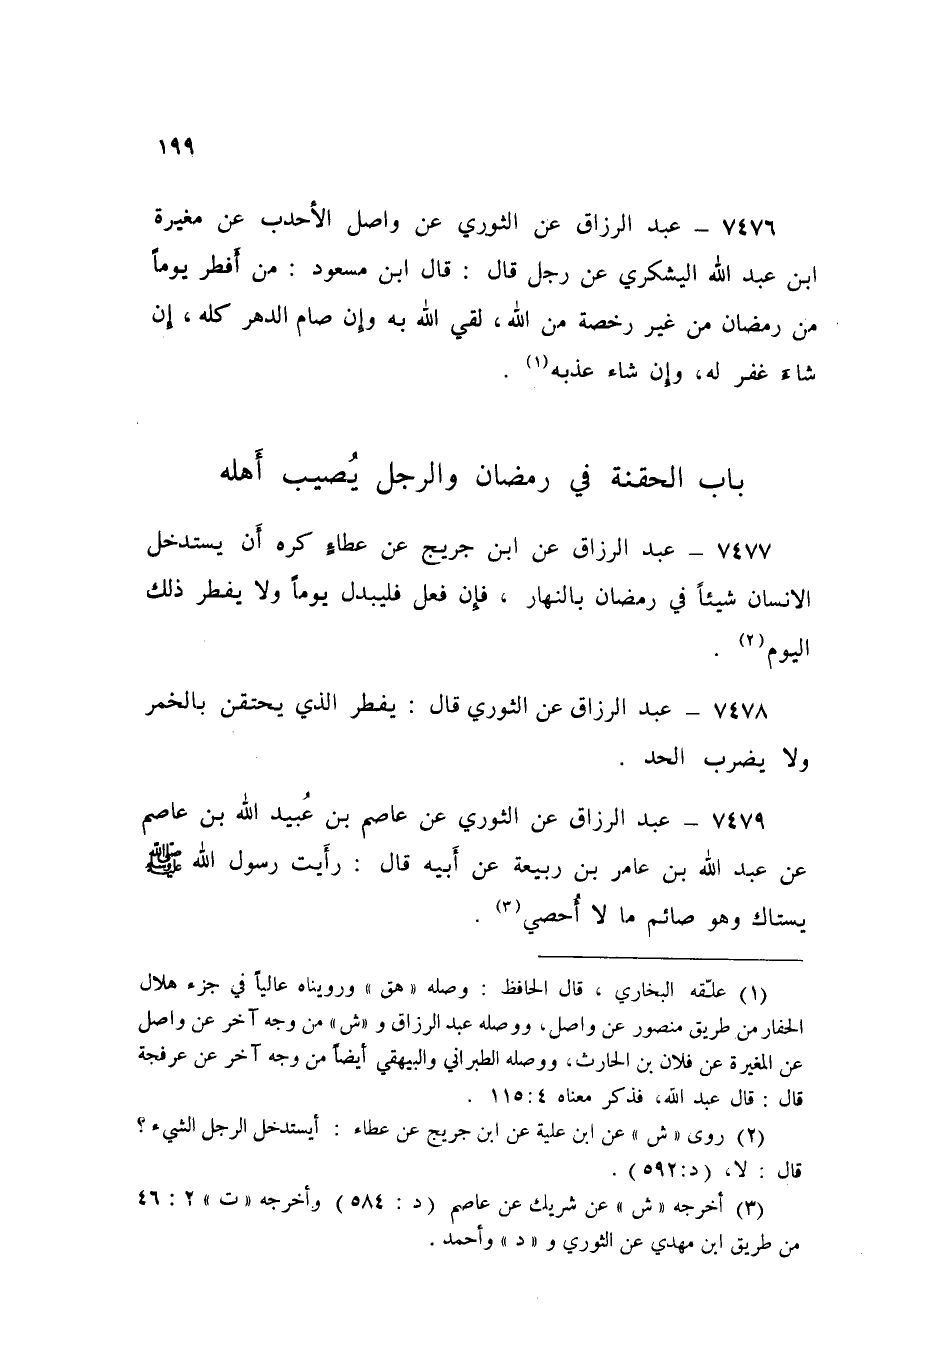 ١٩٩
٧٤٧٦ – عبد الرزاق عن الثوري عن واصل الأحدب عن مغيرة
ابن عبد الله اليشكري عن رجل قال : قال ابن مسعود : من أَفطر يوماً
من رمضان من غير رخصة من الله، لقي الله به وإن صام الدهر كله ، إن
شاءَ غفر له، وإن شاء عذبه(١) .
باب الحقنة في رمضان والرجل يُصيب أَهله
٧٤٧٧ – عبد الرزاق عن ابن جريج عن عطاءٍ كره أَن يستدخل
الانسان شيئاً في رمضان بالنهار ، فإن فعل فليبدل يوماً ولا يفطر ذلك
اليوم(٢) .
٧٤٧٨ – عبد الرزاق عن الثوري قال : يفطر الذي يحتقن بالخمر
ولا يضرب الحد .
٧٤٧٩ – عبد الرزاق عن الثوري عن عاصم بن عُبيد الله بن عاصم
عن عبد الله بن عامر بن ربيعة عن أَبيه قال : رأَيت رسول الله ﷺ
يستاك وهو صائم ما لا أُحصي(٣) .
(١) علّقه البخاري ، قال الحافظ : وصله « هق » ورويناه عالياً في جزء هلال
الحفار من طريق منصور عن واصل، ووصله عبد الرزاق و «ش» من وجه آخر عن واصل
عن المغيرة عن فلان بن الحارث، ووصله الطبراني والبيهقي أيضاً من وجه آخر عن عرفجة
قال : قال عبد الله، فذكر معناه ٤:١١٥ .
(٢) روى « ش » عن ابن علية عن ابن جريج عن عطاء : أيستدخل الرجل الشيء ؟
قال : لا، (د:٥٩٢) .
(٣) أخرجه « ش » عن شريك عن عاصم (د : ٥٨٤) وأخرجه « ت » ٢ : ٤٦
من طريق ابن مهدي عن الثوري و « د » وأحمد .